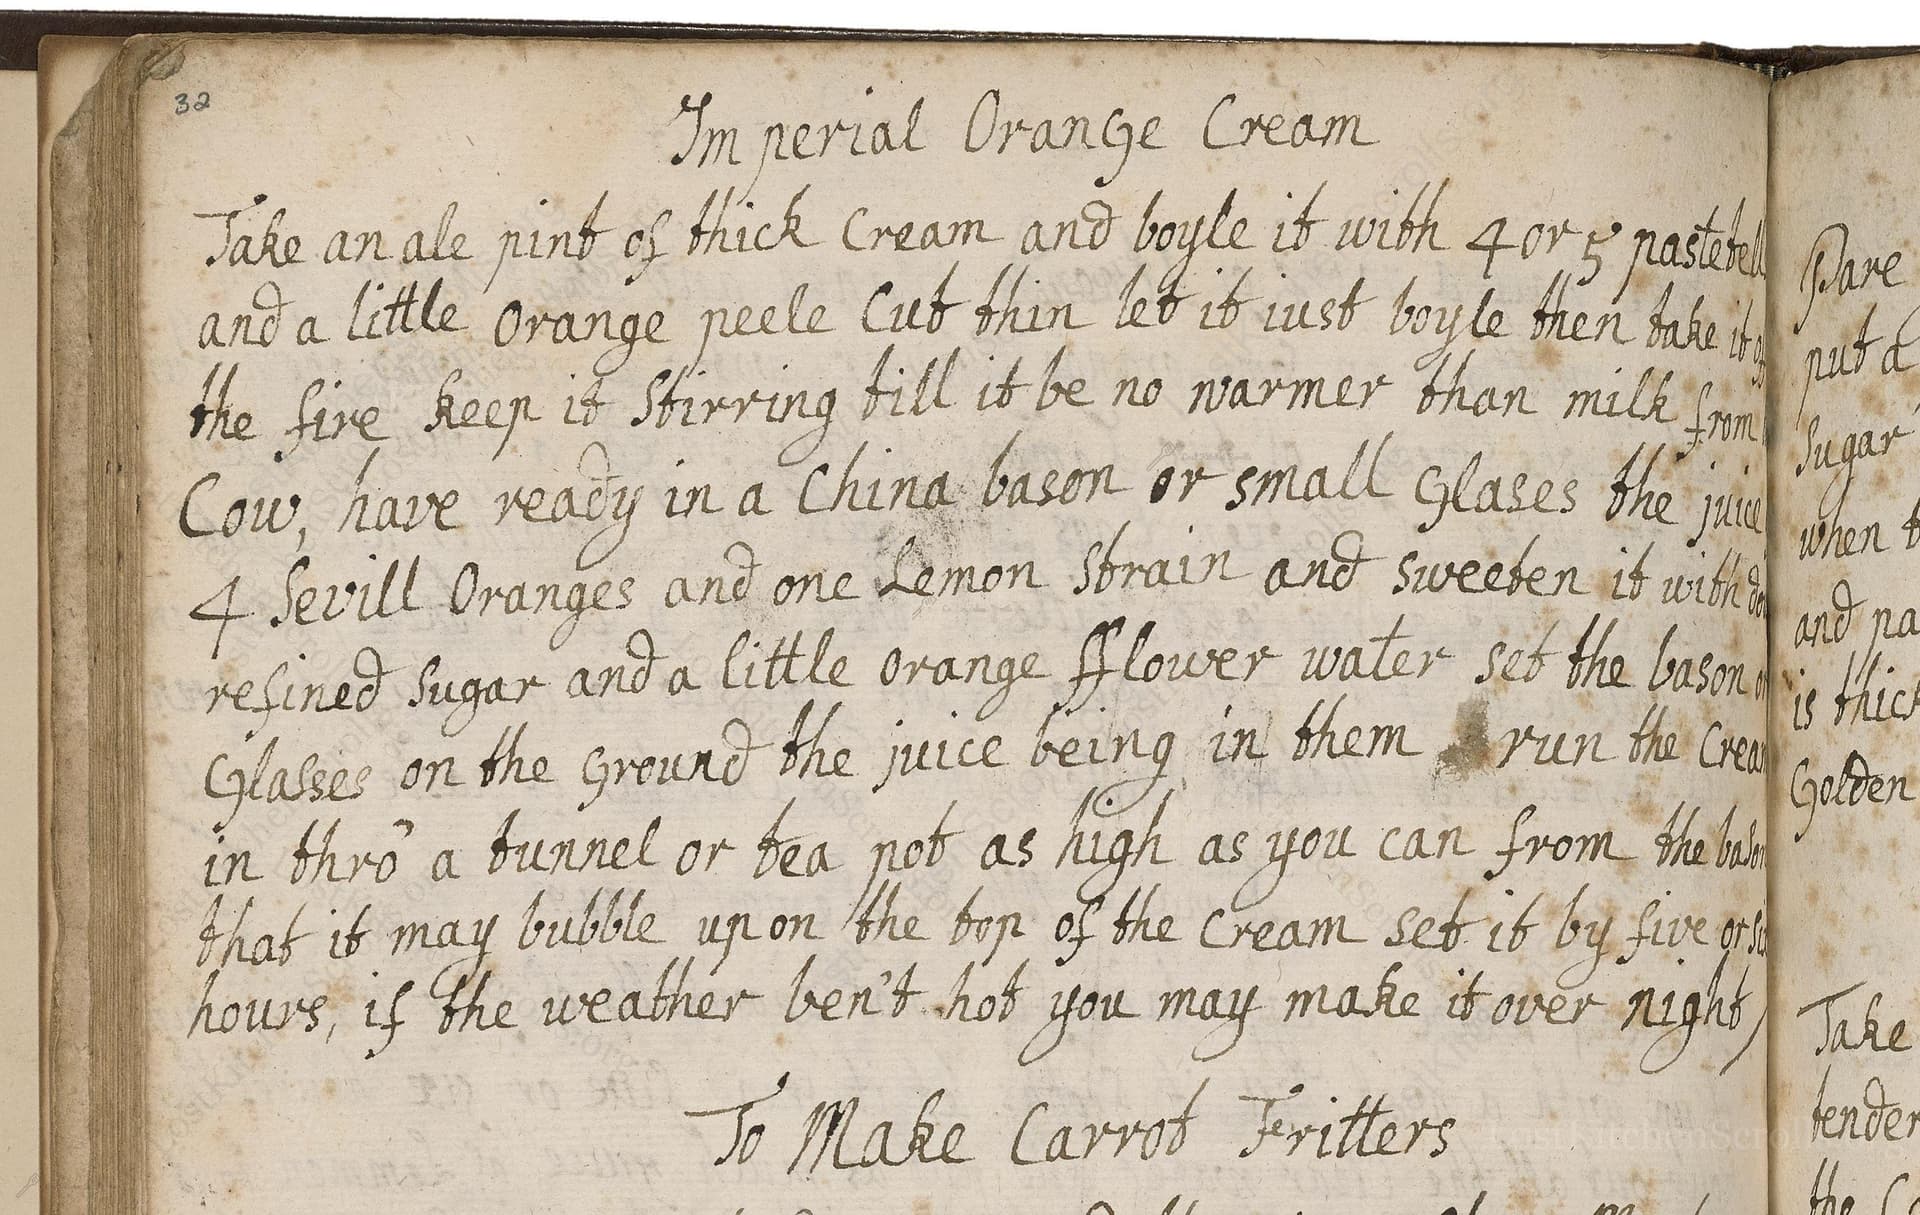 32
Imperial Orange Cream
Take an ale pint of thick Cream and boyle it with 4 or 5
and a little Orange peele Cut thin let it iust boyle then take it
the fire keep it Stirring till it be no warmer than milk from
Cow, have ready in a China bason or small Glases the juice
4 Sevill Oranges and one Lemon Strain and sweeten it with
refined sugar and a little orange fflower water set the bason or
Glasses on the Ground the juice being in them run the
in thrō a tunnel or tea pot as high as you can from the
that it may bubble upon the top of the Cream set it by five or
hours, if the weather ben't hot you may make it over night,
To Make Carrot Fritters
Pare
put a
Sugar
when
and
is
Golden
Take
tender
the